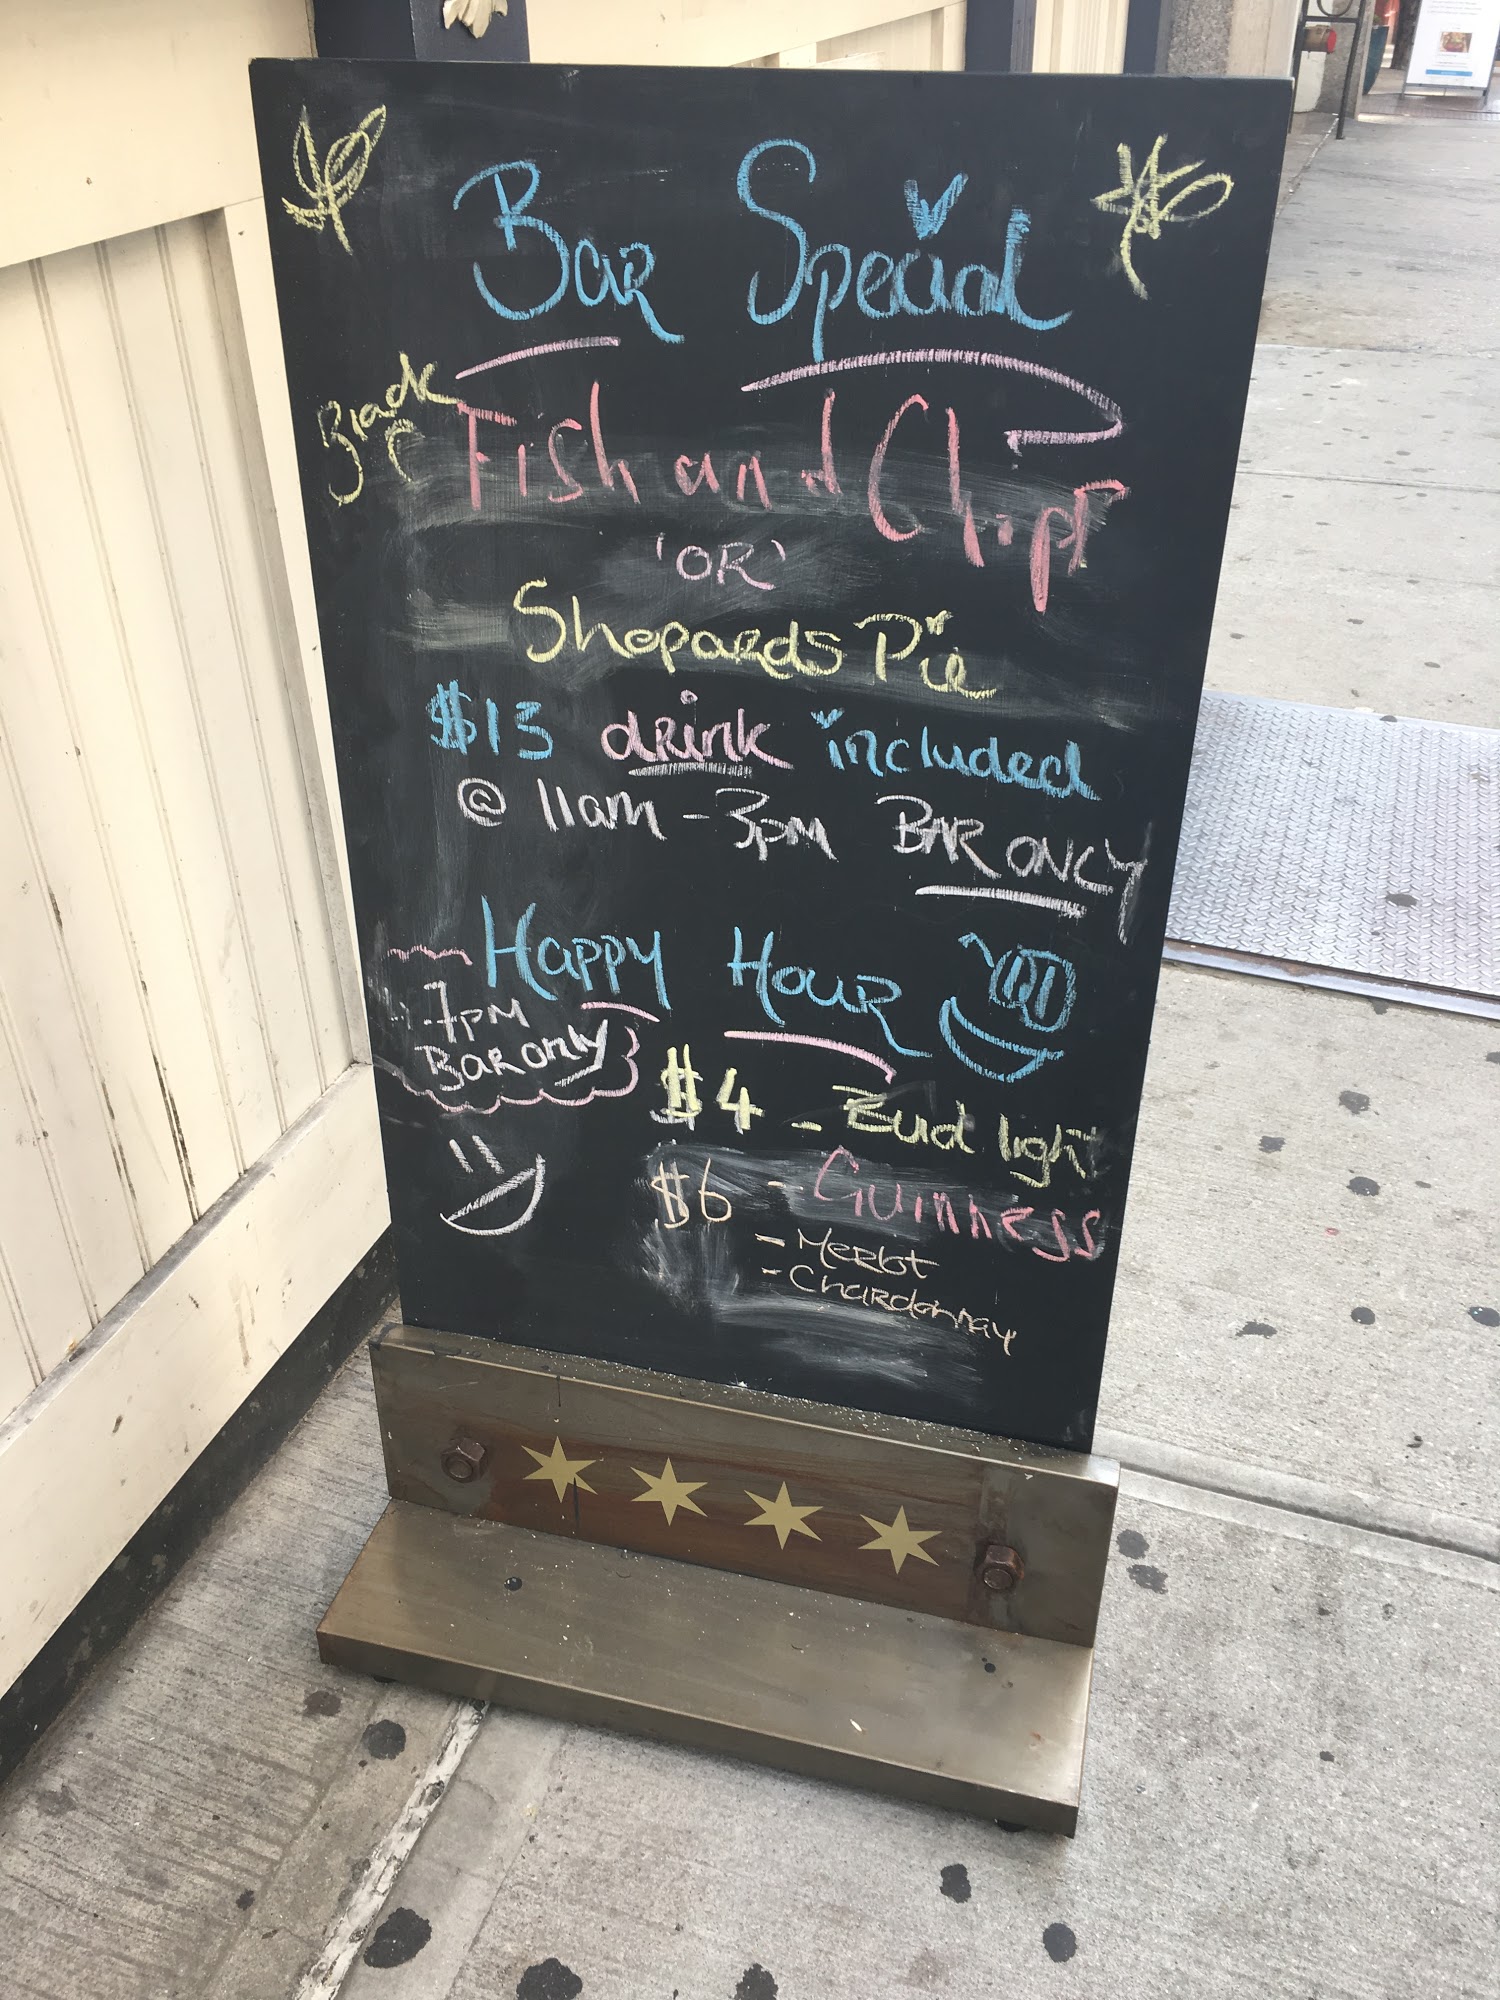 Bar Special
Fish and Chips
'OR'
Shopards Pie
$13 drink included
@ 11am - 3pm BAR ONLY
Happy Hour
7pm
Bar only
$4 - Bud light
$6 - Guinness
- Merlot
- Chardonnay